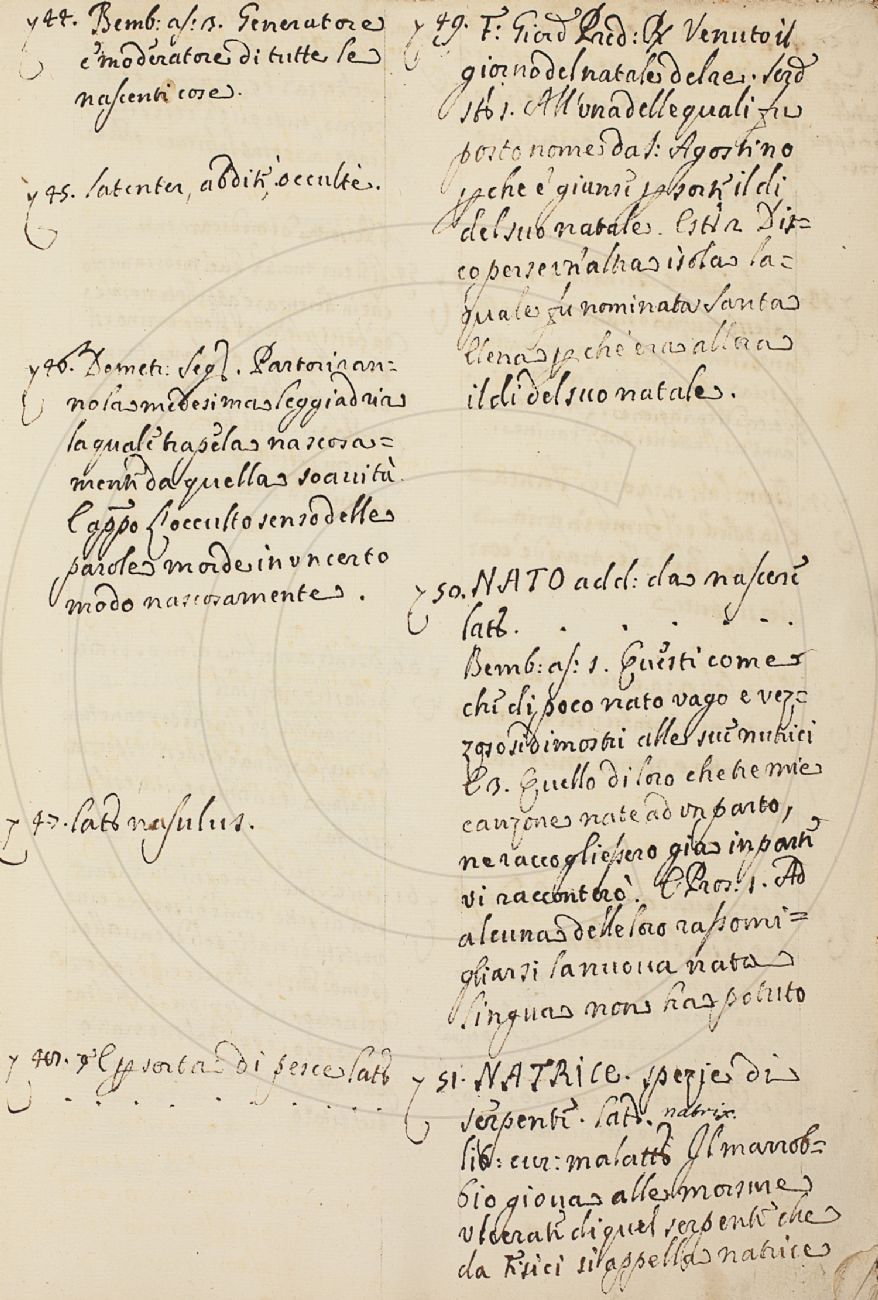 y 44. Bemb: as: 3. Generatore
e moderatore di tutte le
nascenti cose.
y 45. latenter, abditè, occultè.
y 46. Demetr: Segñ. Partoriran=
no la medesima leggiadria
la quale trapela nascosa=
mente da quella soavità.
E appõ. L'occulto senso delle
parole morde in un certo
modo nascosamente.
y 47. lat: nasulus.
y 48. E p sorta di pesce lat:
. . . . . . . . .
y 49. F: Giord: Pred: R. Venuto il
giorno del natale del re. Serd:
st: 1. All'una delle quali fu
posto nome da S: Agostino
p che è giunse p sorte il di
del suo natale. E st: 12. Dis=
coperser un'altra isola la=
quale fu nominata Santa
Elena p che era allora
il di del suo natale.
y 50. NATO add: da nascere
lat: . . . . . .
Bemb: as: 1. Questi come
che di poco nato vago e vez=
zoso si dimostri alle sue nutrici
E 3. Quello di loro che tre mie
canzone nate ad un parto,
ne raccogliessero gia in parte
vi racconterò. E Pros: 1. Ad
alcuna delle loro rassomi=
gliarsi la nuova nata
lingua non ha potuto
y 51. NATRICE. spezie di
serpente. lat: natrix.
lib: cur: malatt: Il marrob=
bio giova alle morsure
ulcerate di quel serpente che
da Fisici si appella natrice